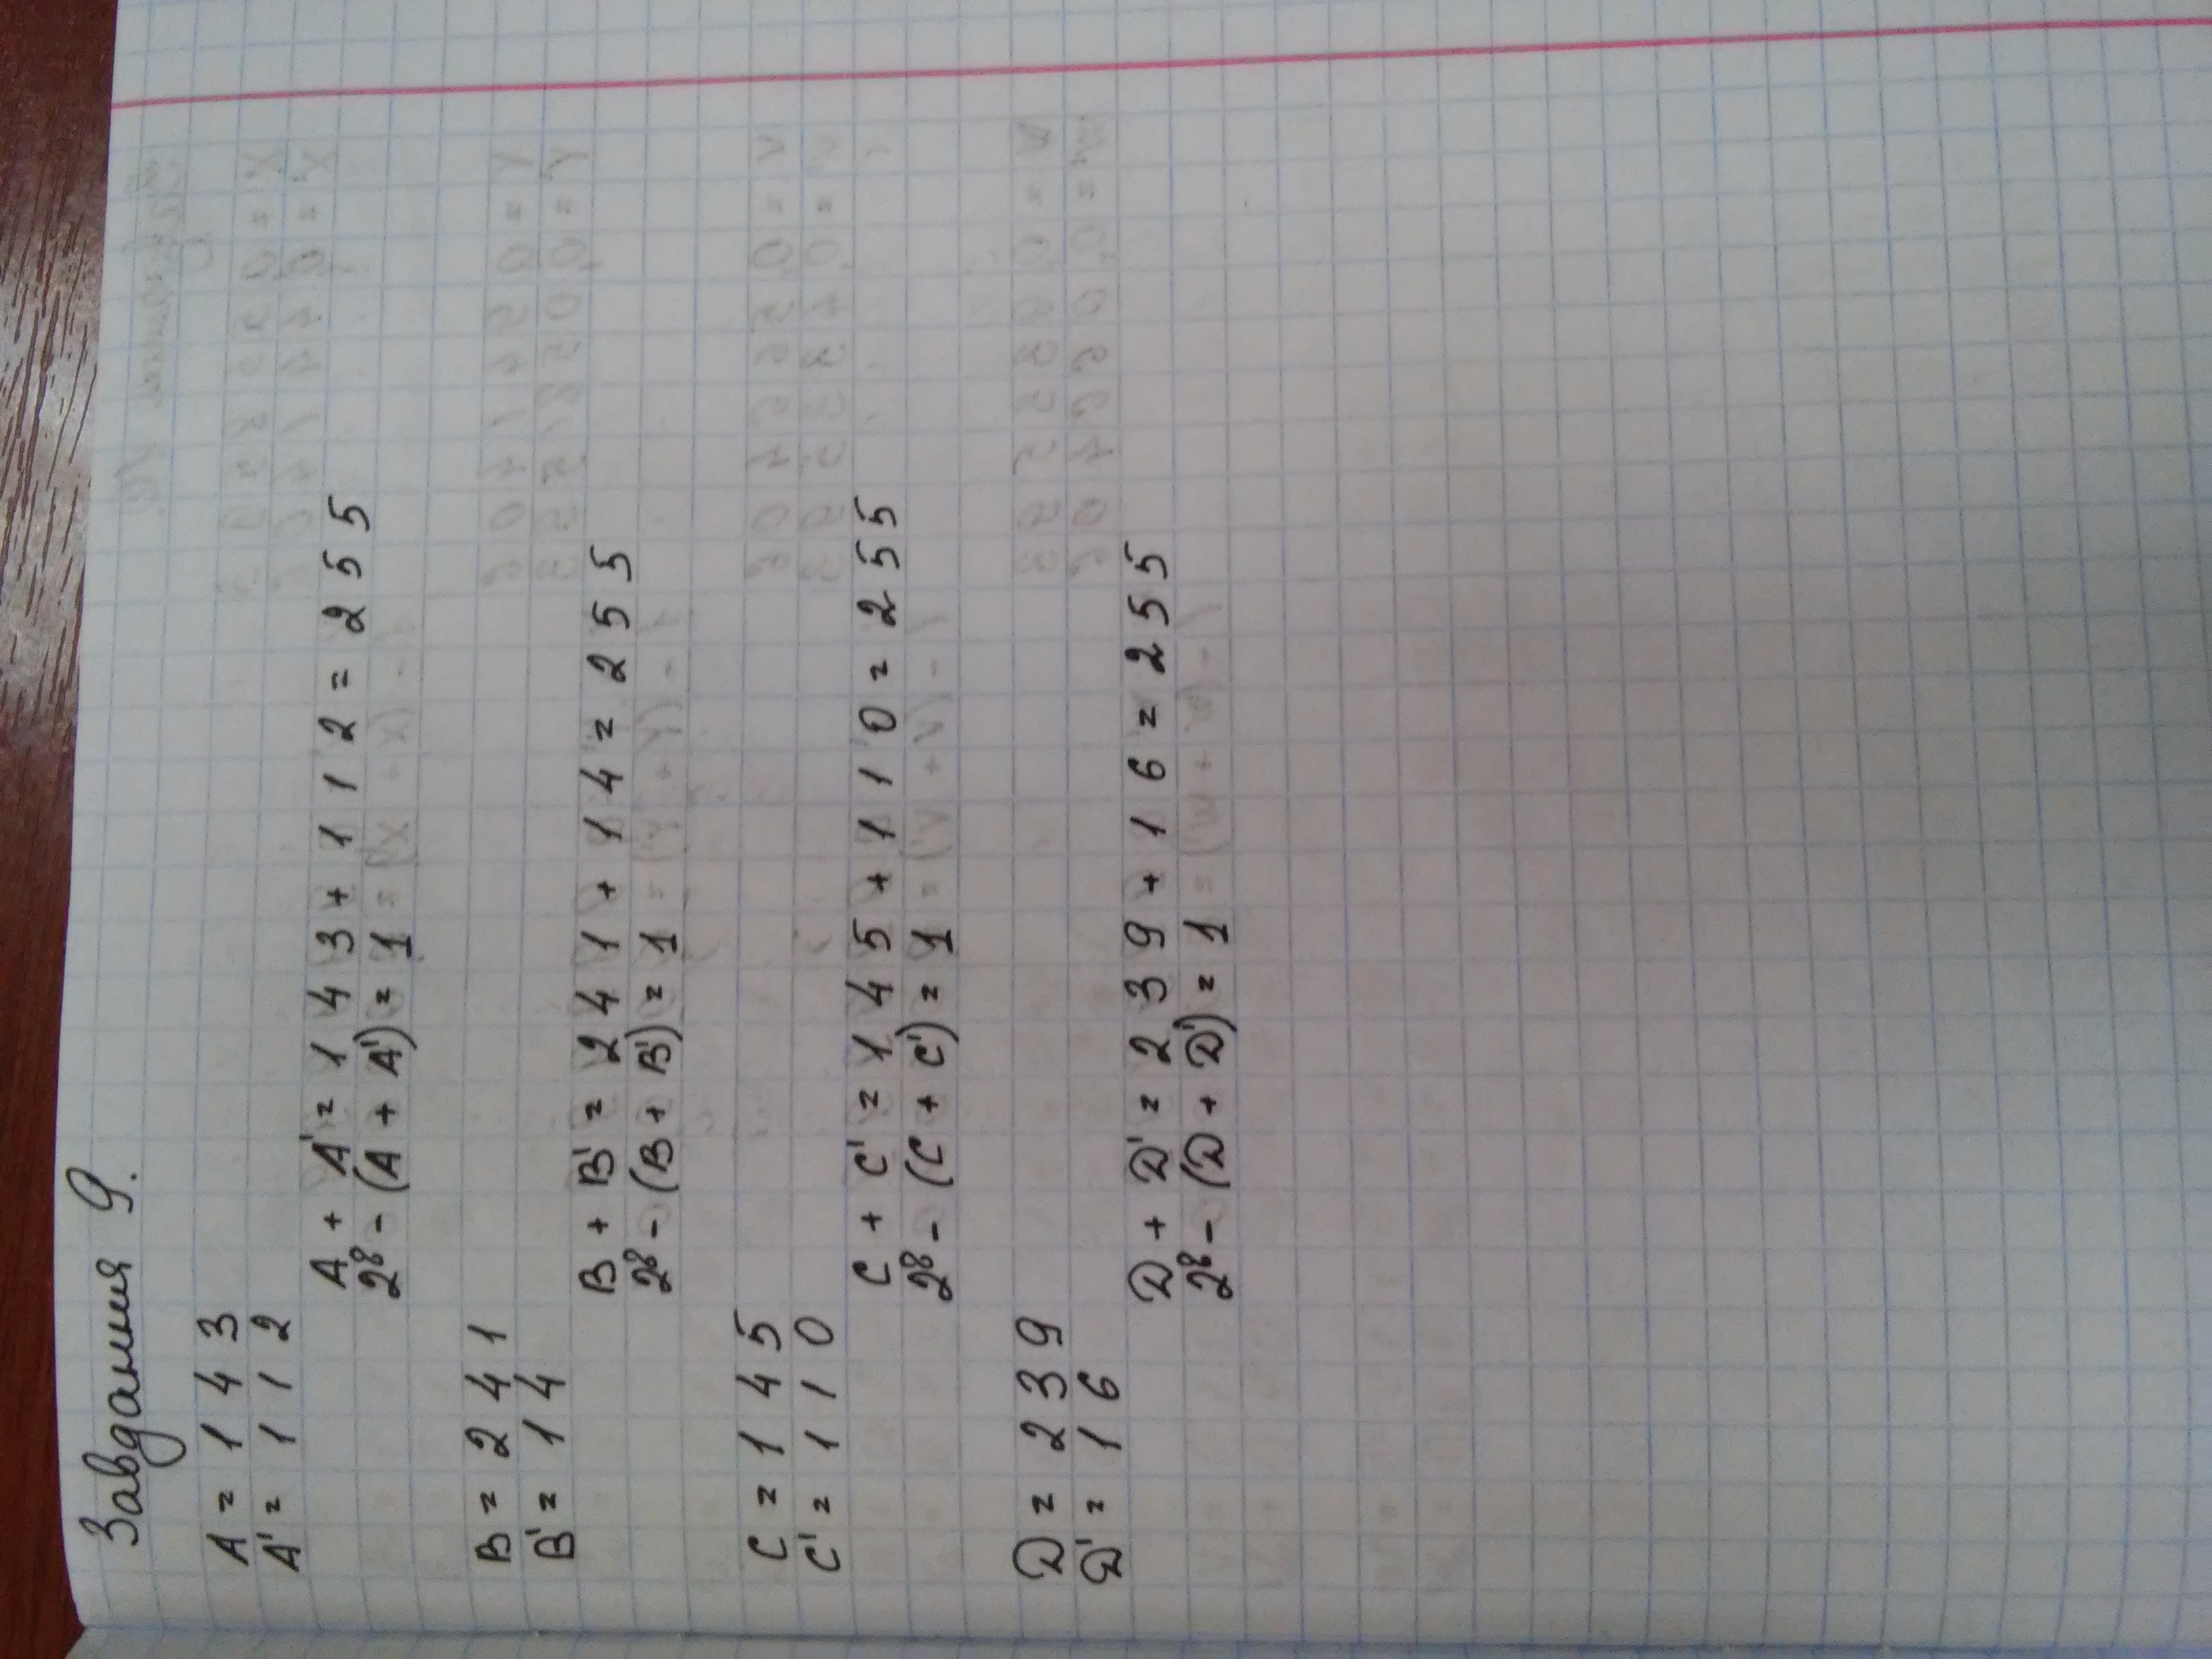 Завдання 9.
A = 1 4 3
A' = 1 1 2
A + A' = 1 4 3 + 1 1 2 = 2 5 5
2⁸ - (A + A') = 1
B = 2 4 1
B' = 1 4
B + B' = 2 4 1 + 1 4 = 2 5 5
2⁸ - (B + B') = 1
C = 1 4 5
C' = 1 1 0
C + C' = 1 4 5 + 1 1 0 = 2 5 5
2⁸ - (C + C') = 1
D = 2 3 9
D' = 1 6
D + D' = 2 3 9 + 1 6 = 2 5 5
2⁸ - (D + D') = 1